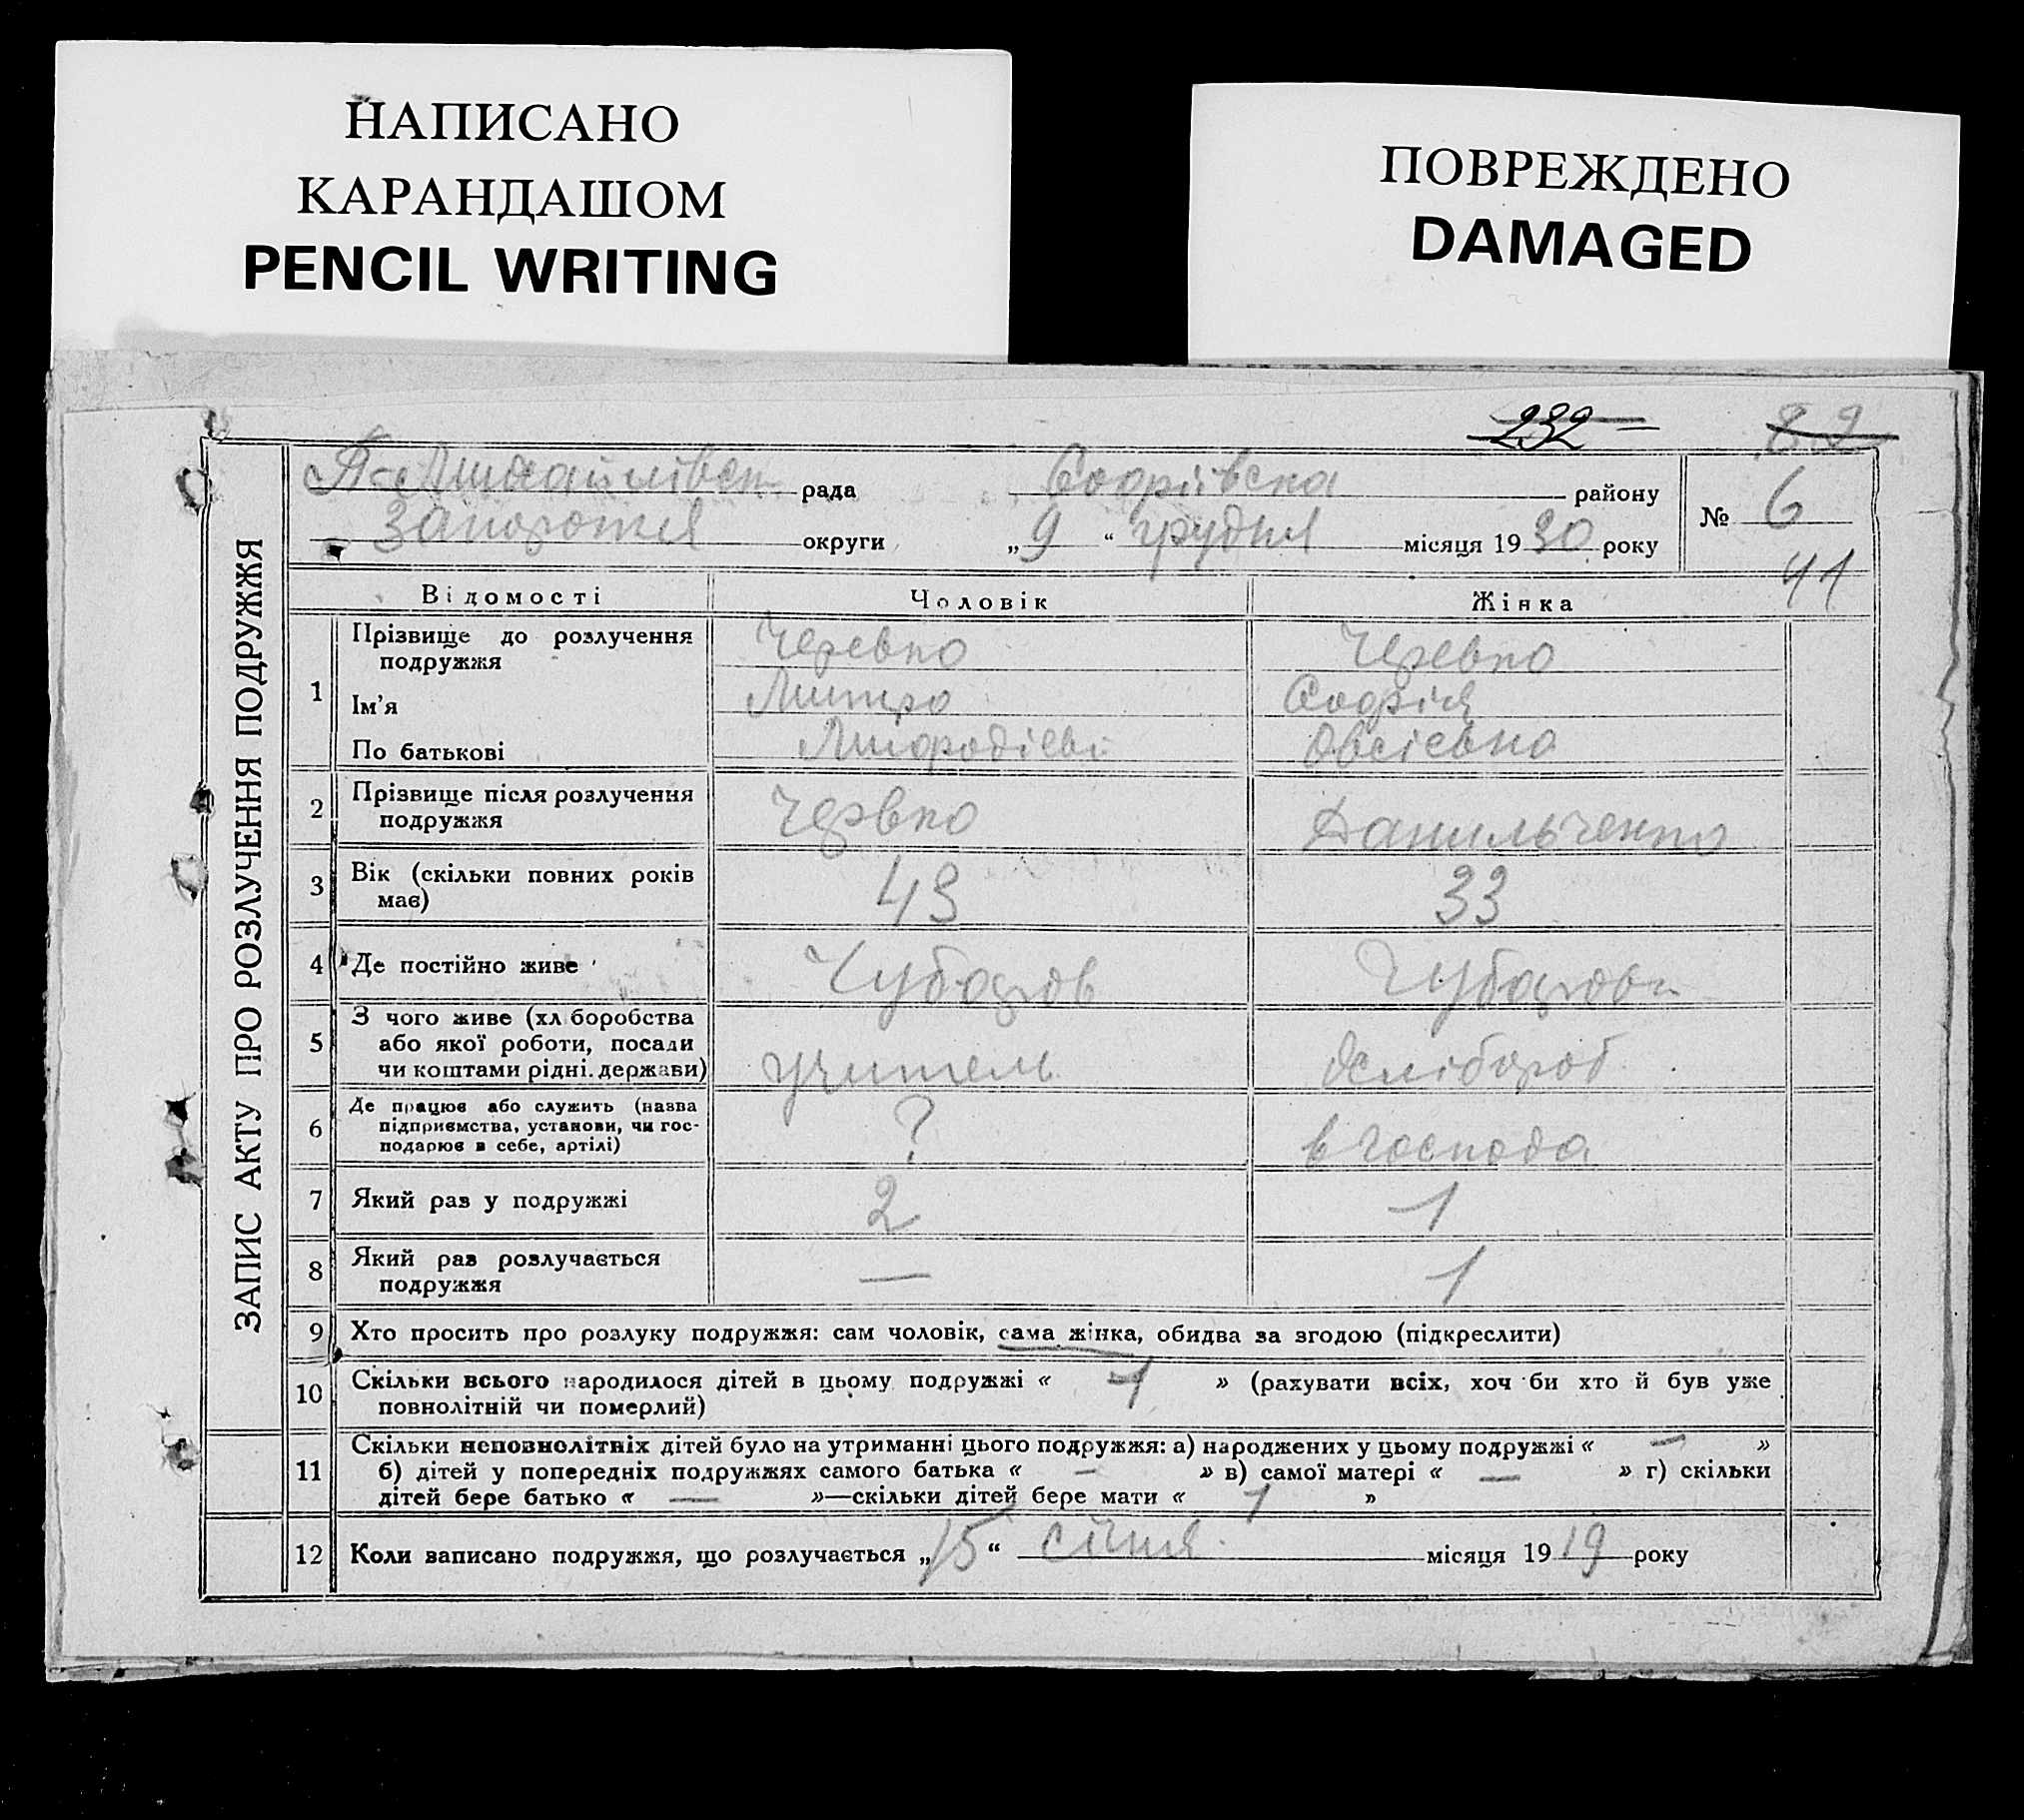 НАПИСАНО
КАРАНДАШОМ
PENCIL WRITING
ПОВРЕЖДЕНО
DAMAGED
232
82
рада Софіївска району
№ 6
Запоріжжя округи „9“ грудня місяця 1930 року
41
ЗАПИС АКТУ ПРО РОЗЛУЧЕННЯ ПОДРУЖЖЯ
Відомості Чоловік Жінка
1 Прізвище до розлучення подружжя Черевко Черевко
Ім'я Митро Софія
По батькові Овсіевна
2 Прізвище після розлучення подружжя Червко Данильченко
3 Вік (скільки повних років має) 43 33
4 Де постійно живе Чубарів
5 З чого живе (хліборобства або якої роботи, посади чи коштами рідні. держави) учитель хлібороб
6 Де працює або служить (назва підприємства, установи, чи господарює в себе, артілі) ? в господа
7 Який раз у подружжі 2 1
8 Який раз розлучається подружжя — 1
9 Хто просить про розлуку подружжя: сам чоловік, сама жінка, обидва за згодою (підкреслити)
10 Скільки всього народилося дітей в цьому подружжі « 1 » (рахувати всіх, хоч би хто й був уже
повнолітній чи померлий)
11 Скільки неповнолітніх дітей було на утриманні цього подружжя: а) народжених у цьому подружжі « — »
б) дітей у попередніх подружжях самого батька « — » в) самої матері « — » г) скільки
дітей бере батько « — »—скільки дітей бере мати « 1 »
12 Коли записано подружжя, що розлучається „15“ січня місяця 1919 року